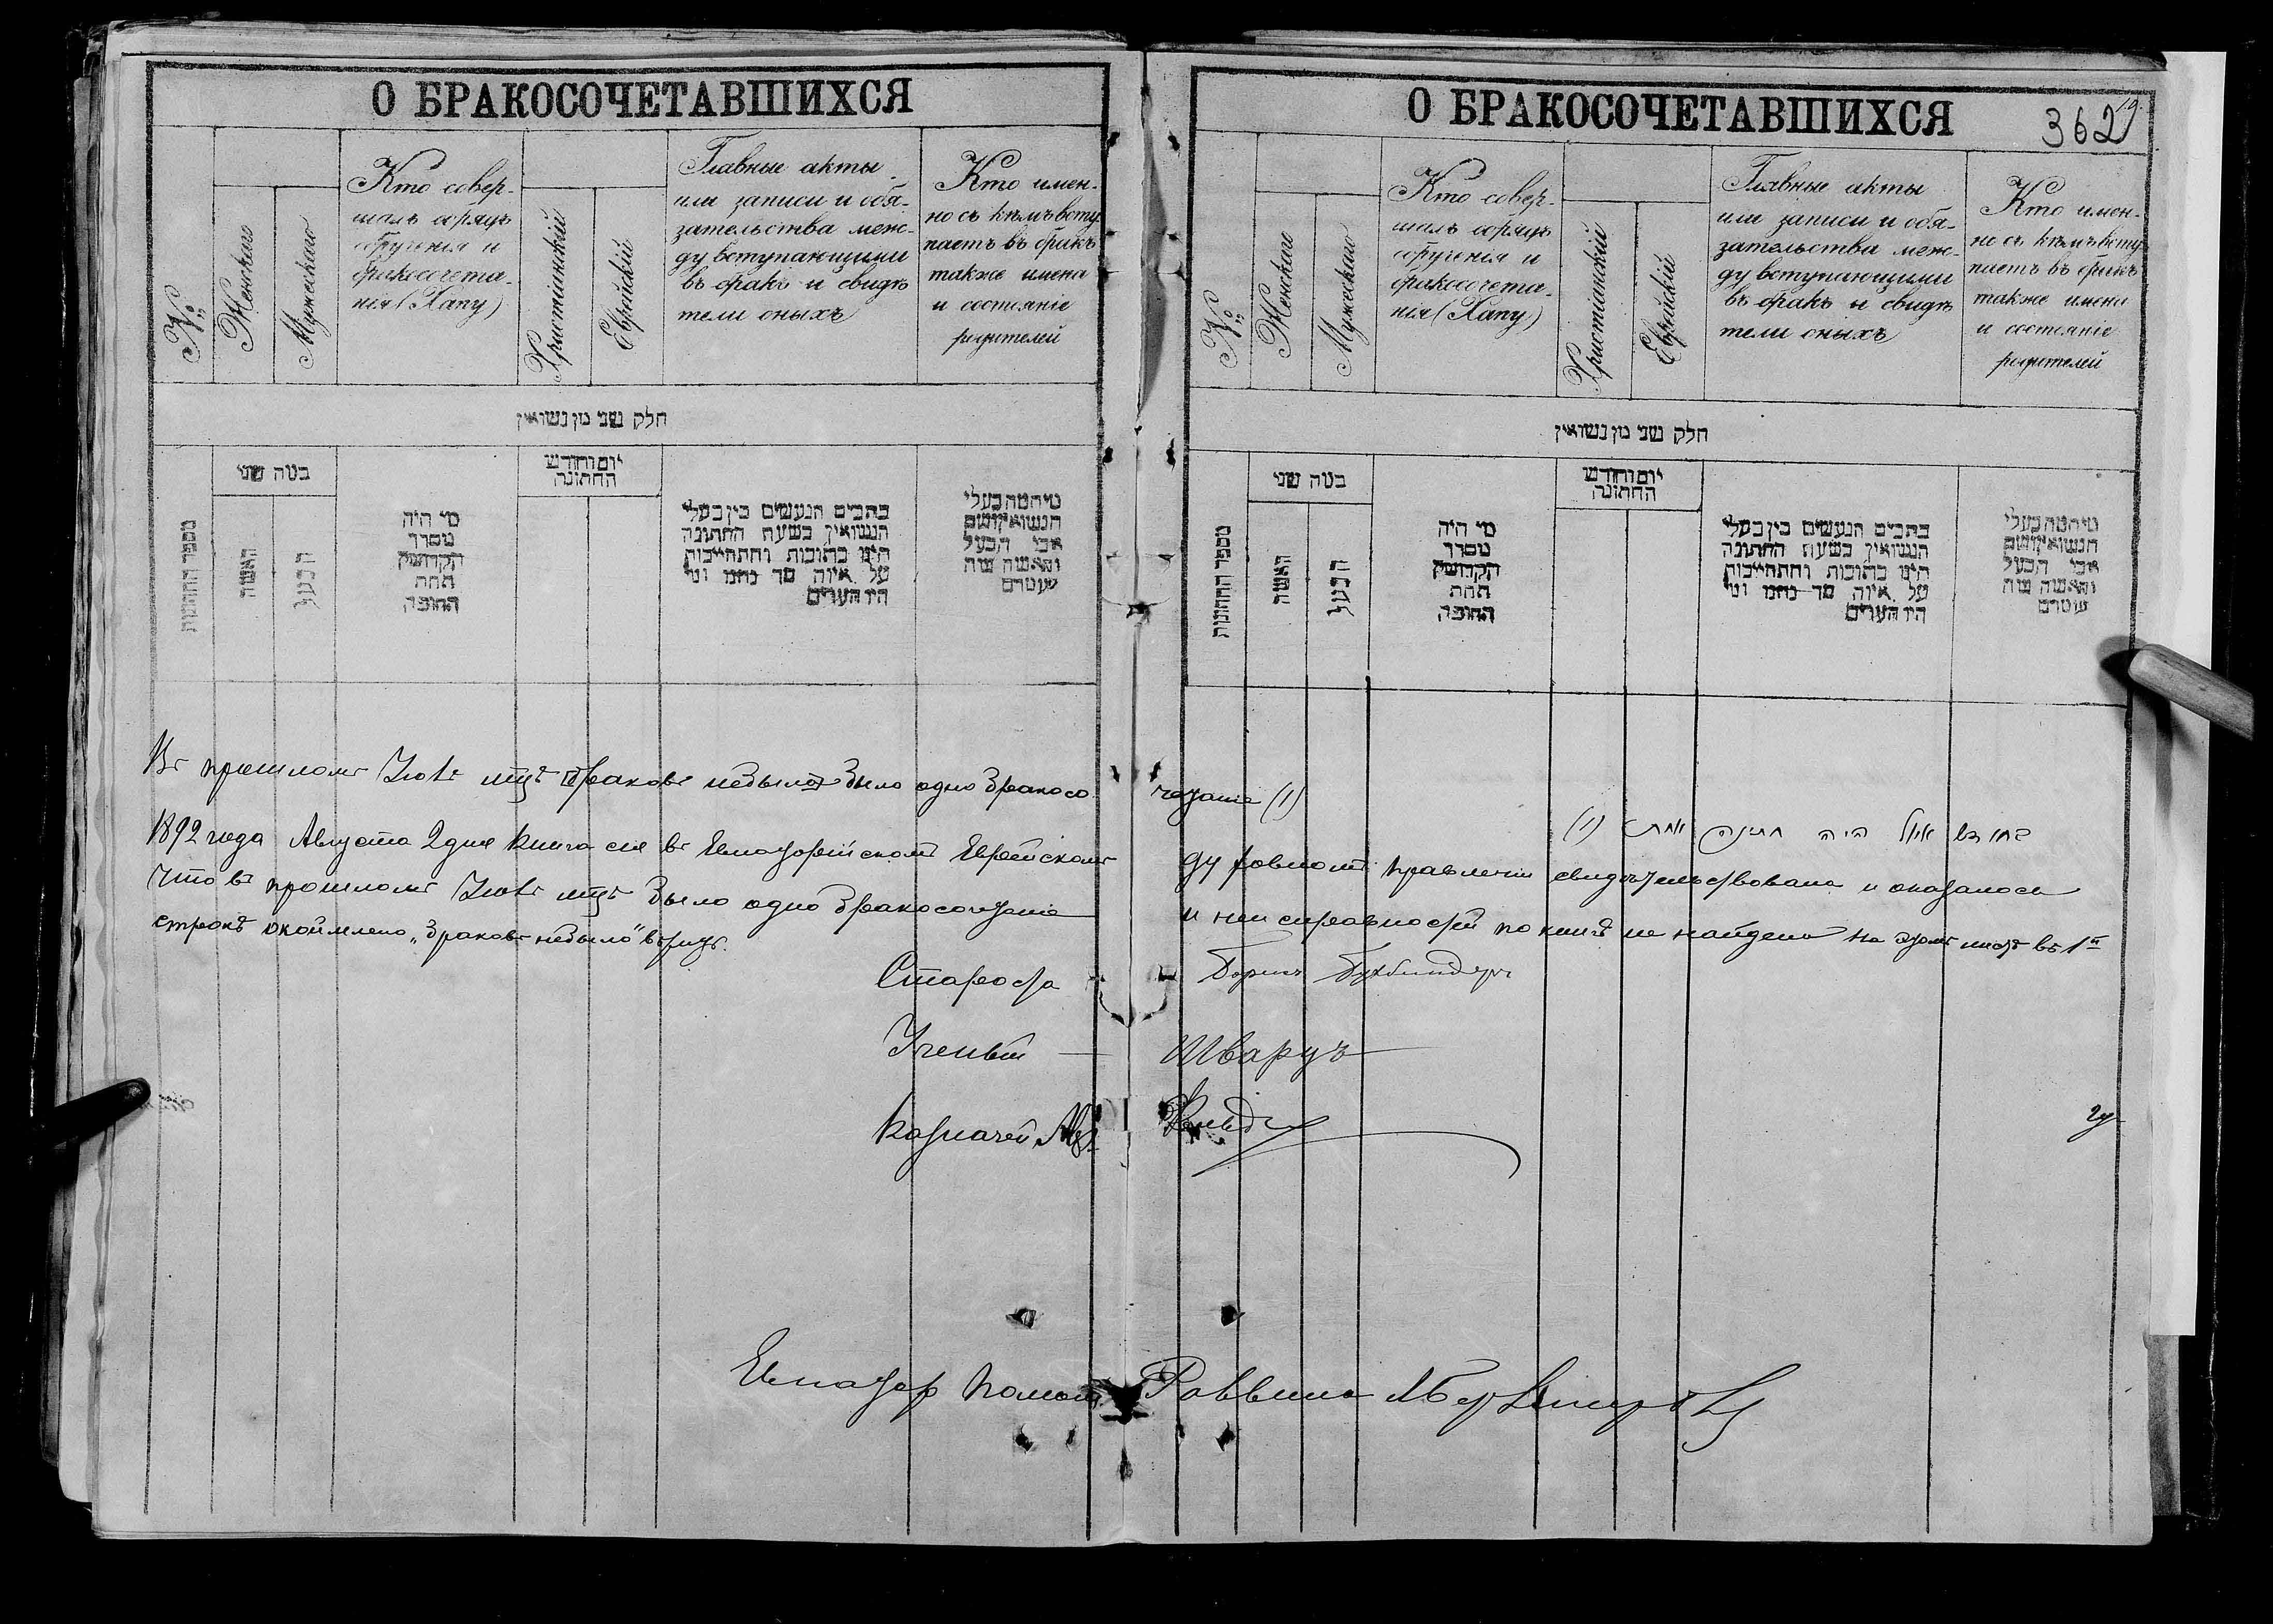 О БРАКОСОЧЕТАВШИХСЯ
№
Женскаго
Мужескаго
Кто совер-
шалъ обрядъ
обрученія и
бракосочета-
нія (Хапу)
Христіанскій
Еврейскій
Главные акты
или записи и обя-
зательства меж-
ду вступающими
въ бракъ и свидѣ
тели оныхъ
Кто имен-
но съ кѣмъ всту
паетъ въ бракъ
также имена
и состояніе
родителей
חלק שני מן נשואין
מספר החתונות
כמה שני
האשה
הבעל
מי היה
מסדר
הקדושין
תחת
החופה
יום וחודש
החתונה
כתבים הנעשים בין בעלי
הנשואין בשעת החתונה
היינו כתובות והתחייבות
על איזה סך נתנו ומי
היו העדים
אבי הבעל
О БРАКОСОЧЕТАВШИХСЯ
362
19.
№
Женскаго
Мужескаго
Кто совер-
шалъ обрядъ
обрученія и
бракосочета-
нія (Хапу)
Христіанскій
Еврейскій
Главные акты
или записи и обя-
зательства меж-
ду вступающими
въ бракъ и свидѣ
тели оныхъ
Кто имен-
но съ кѣмъ всту
паетъ въ бракъ
также имена
и состояніе
родителей
חלק שני מן נשואין
מספר החתונות
כמה שני
האשה
הבעל
מי היה
מסדר
הקדושין
תחת
החופה
יום וחודש
החתונה
כתבים הנעשים בין בעלי
הנשואין בשעת החתונה
היינו כתובות והתחייבות
על איזה סך נתנו ומי
היו העדים
אבי הבעל
Въ прошломъ Іюлѣ мцѣ браковъ небыло было одно бракосо-четаніе (1)
בחודש יולי היה חתונה אחת (1)
1892 года Августа 2 дня книга сія въ Евпаторійскомъ Еврейскомъ духовномъ правленіи свидѣтельствована и оказалось
что въ прошломъ Іюлѣ мцѣ было одно бракосочетаніе и неисправностей по книгѣ не найдено на этомъ листѣ въ 1й
строкѣ окоймлено „браковъ небыло"
Староста Борисъ Бухбиндеръ
Ученый Шварцъ
Казначей
Евпатор помощ Раввина